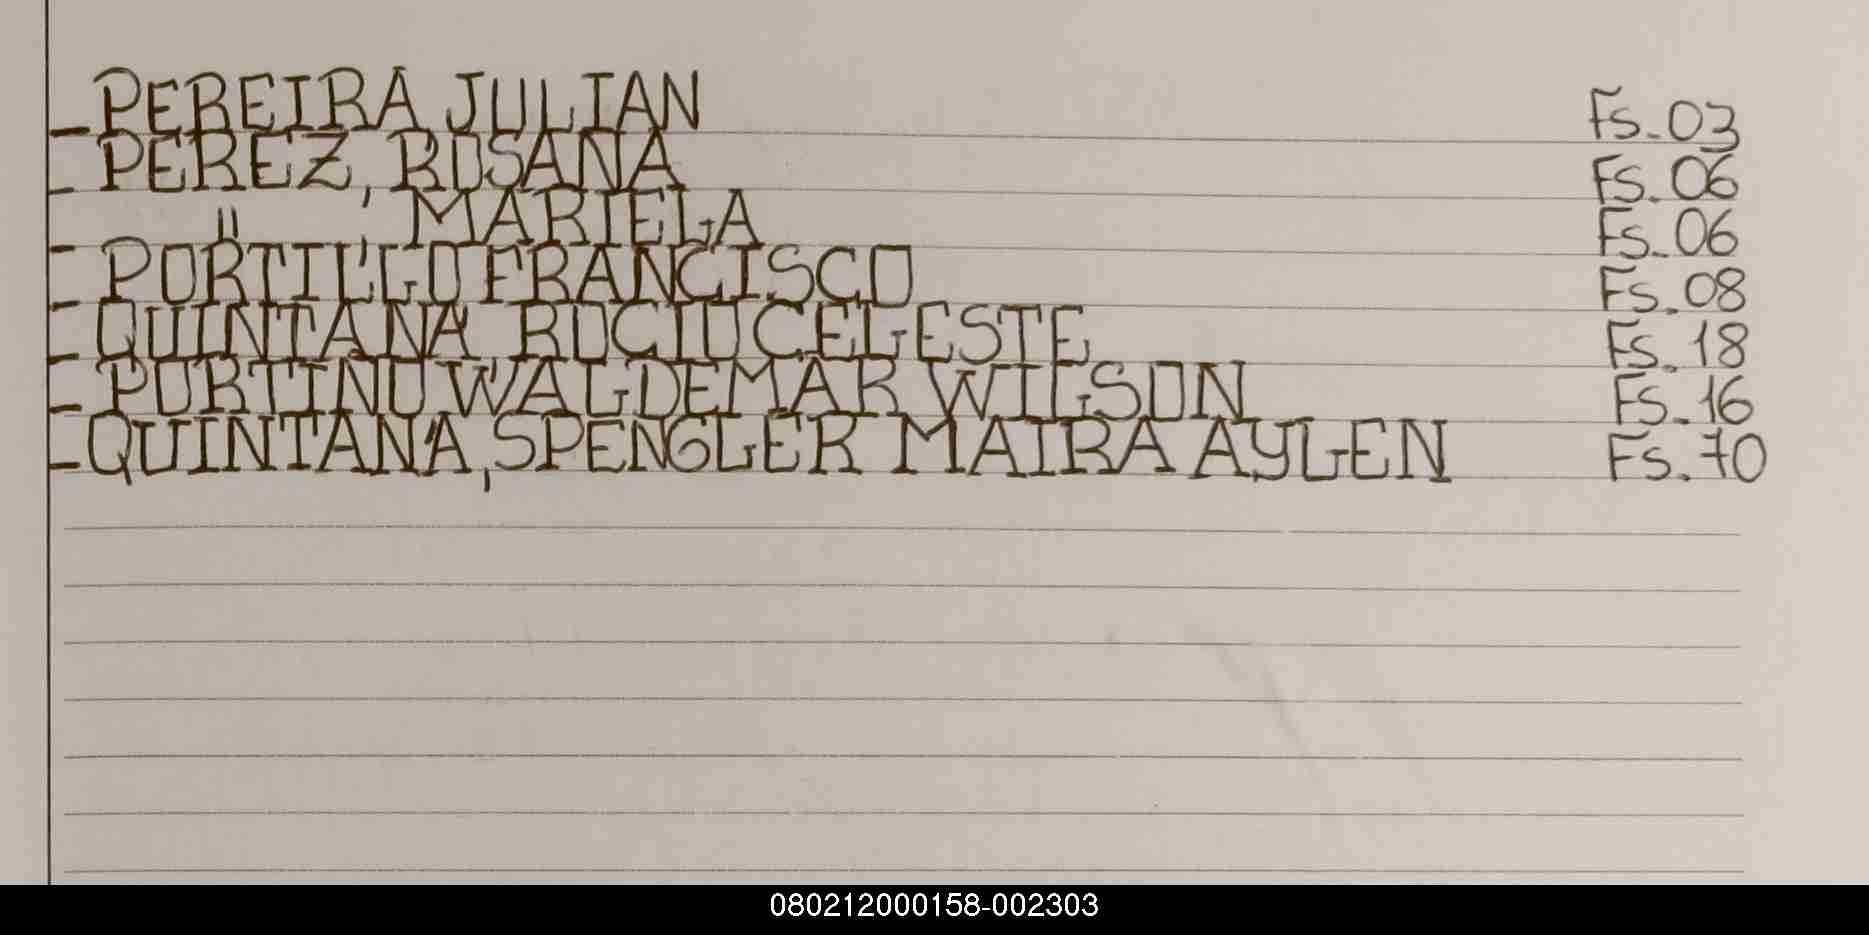 - PEREIRA JULIAN Fs. 03
- PEREZ, ROSANA Fs. 06
- " , MARIELA Fs. 06
- PORTILLO FRANCISCO Fs. 08
- QUINTANA, ROCIO CELESTE Fs. 18
- PORTINO WALDEMAR WILSON Fs. 16
- QUINTANA, SPENGLER MAIRA AYLEN Fs. 70
080212000158-002303